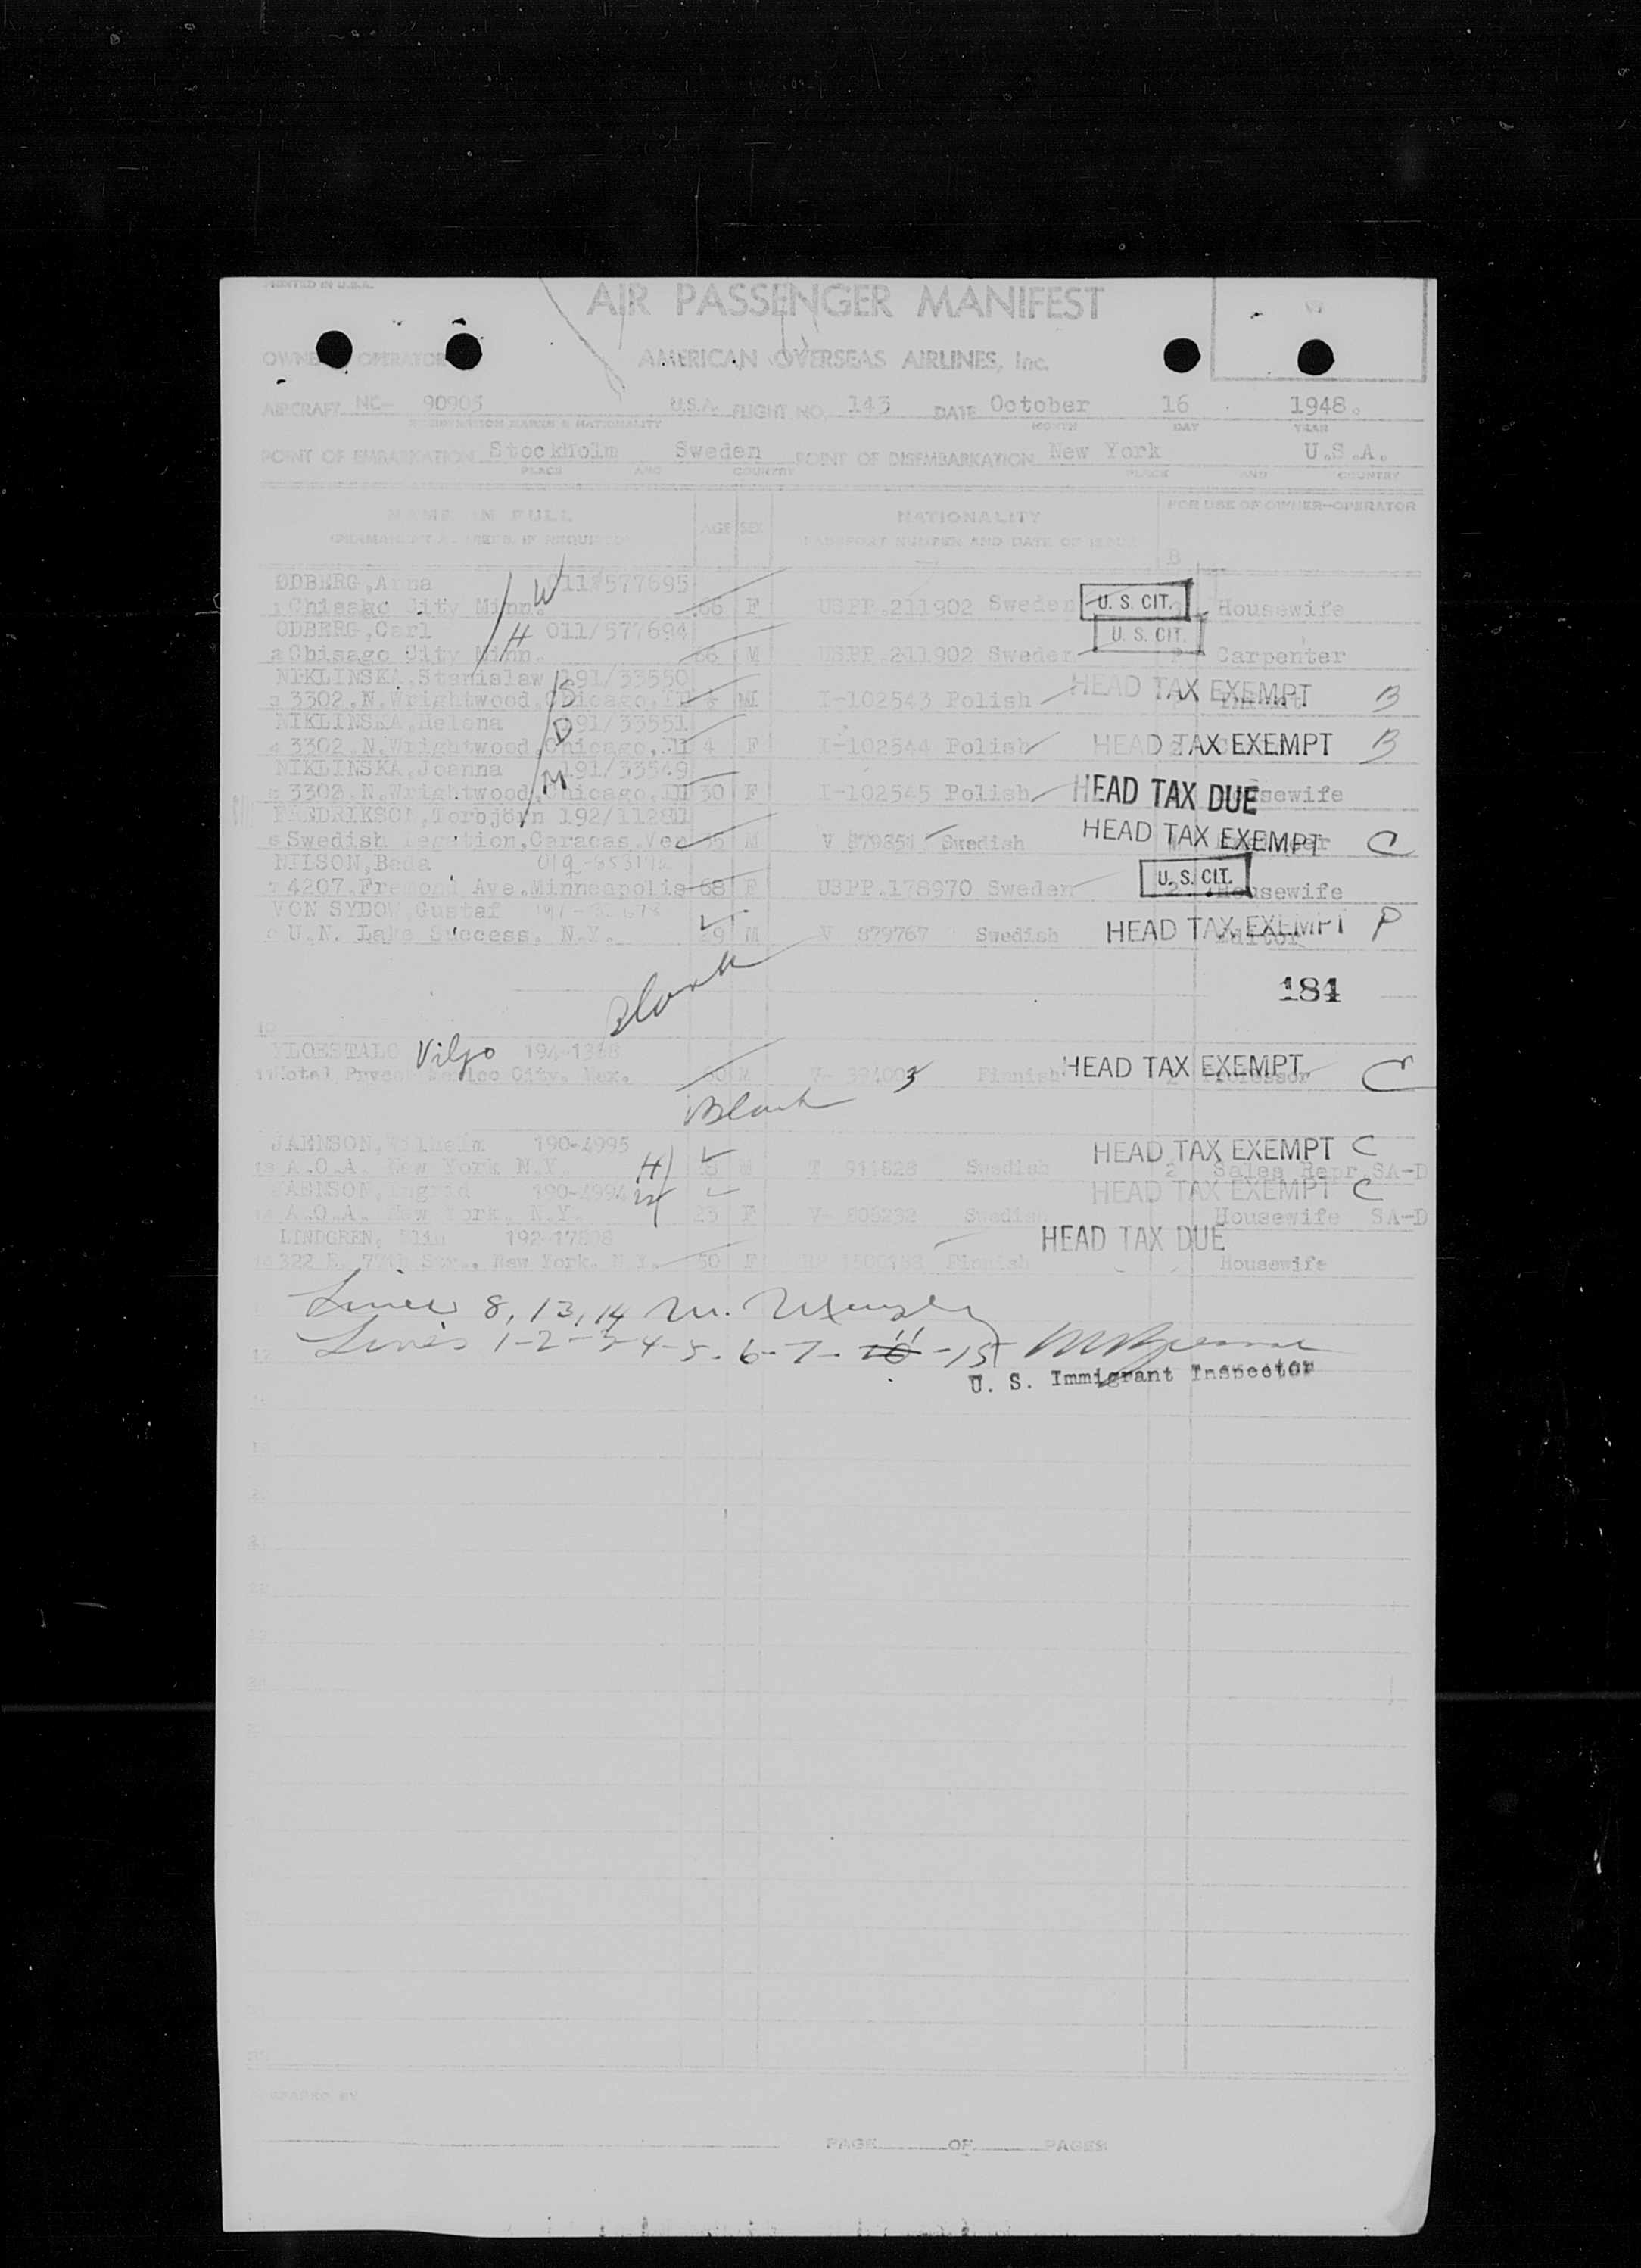 PRINTED IN U.S.A.
AIR PASSENGER MANIFEST
OWNER OPERATOR AMERICAN OVERSEAS AIRLINES, Inc.
AIRCRAFT NC- 90905 U.S.A. FLIGHT NO. 143 DATE October 16 1948.
REGISTRATION MARKS & NATIONALITY MONTH DAY YEAR
POINT OF EMBARKATION Stockholm Sweden POINT OF DISEMBARKATION New York U.S.A.
PLACE AND COUNTRY PLACE AND COUNTRY
NAME IN FULL AGE SEX NATIONALITY FOR USE OF OWNER-OPERATOR
PASSPORT NUMBER AND DATE OF ISSUE
B
ODBERG, Anna W 011/577695
1 Chisago City Minn. 66 F USPP.211902 Sweden U. S. CIT. Housewife
ODBERG, Carl H 011/577694 U. S. CIT.
2 Chisago City Minn. 66 M USPP.211902 Sweden 2 Carpenter
NIKLINSKA, Stanislaw S 191/33550
3 3302.N.Wrightwood, Chicago, Ill M I-102543 Polish HEAD TAX EXEMPT B
NIKLINSKA, Helena D 191/33551
4 3302.N.Wrightwood, Chicago, Ill 4 F I-102544 Polish HEAD TAX EXEMPT B
NIKLINSKA, Joanna M 191/33549
5 3302.N.Wrightwood, Chicago, Ill 30 F I-102545 Polish HEAD TAX DUE Housewife
FREDRIKSON, Torbjörn 192/11281 HEAD TAX EXEMPT C
6 Swedish Legation, Caracas, Ven 35 M V 879851 Swedish
NILSON, Beda
7 4207.Fremond Ave. Minneapolis 68 F USPP.178970 Sweden U. S. CIT. 2 Housewife
VON SYDOW, Gustaf
U.N. Lake Success, N.Y. 29 M V 879767 Swedish HEAD TAX EXEMPT P Editor
Blank
184
10
YLOESTALO Viljo 194-1368
11 Hotel Mexico City, Mex. 60 M Finnish HEAD TAX EXEMPT Professor C
Blank
JAENSON, Wilhelm 190-4995 HEAD TAX EXEMPT C
13 A.O.A. New York N.Y. H M T 911828 Swedish 2 Sales Repr. SA-D
JAENSON, Ingrid 190-4994 W HEAD TAX EXEMPT C
14 A.O.A. New York, N.Y. 23 F V- 808232 Swedish Housewife SA-D
LINDGREN, Elin 192-17808 HEAD TAX DUE
15 322 E. 77th Str., New York, N.Y. 50 F Finnish Housewife
Lines 8, 13, 14
Lines 1-2-3-4-5-6-7-11-15
U. S. Immigrant Inspector
PREPARED BY
PAGE OF PAGES